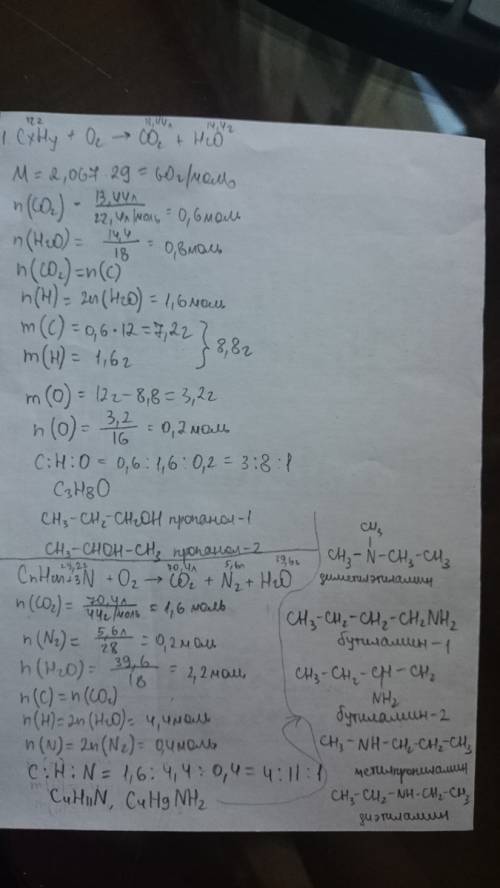 12г 13,44л 14,4г
1. CxHy + O₂ → CO₂ + H₂O
M = 2,067 · 29 = 60г/моль
n(CO₂) = 13,44л / 22,4л/моль = 0,6моль
n(H₂O) = 14,4 / 18 = 0,8моль
n(CO₂) = n(C)
n(H) = 2n(H₂O) = 1,6моль
m(C) = 0,6 · 12 = 7,2г
m(H) = 1,6г } 8,8г
m(O) = 12г – 8,8 = 3,2г
n(O) = 3,2 / 16 = 0,2моль
C:H:O = 0,6 : 1,6 : 0,2 = 3:8:1
C₃H₈O
CH₃–CH₂–CH₂OH пропанол-1
CH₃–CHOH–CH₃ пропанол-2
70,4л 5,6л 39,6г
CnH2n+3N + O₂ → CO₂ + N₂ + H₂O
n(CO₂) = 70,4л / 44г/моль = 1,6 моль
n(N₂) = 5,6л / 28 = 0,2моль
n(H₂O) = 39,6 / 18 = 2,2моль
n(C) = n(CO₂)
n(H) = 2n(H₂O) = 4,4моль
n(N) = 2n(N₂) = 0,4моль
C:H:N = 1,6 : 4,4 : 0,4 = 4:11:1
C₄H₁₁N, C₄H₉NH₂
CH₃
CH₃–N–CH₂–CH₃
диметилэтиламин
CH₃–CH₂–CH₂–CH₂NH₂
бутиламин-1
CH₃–CH₂–CH–CH₂
NH₂
бутиламин-2
CH₃–NH–CH₂–CH₂–CH₃
метилпропиламин
CH₃–CH₂–NH–CH₂–CH₃
диэтиламин